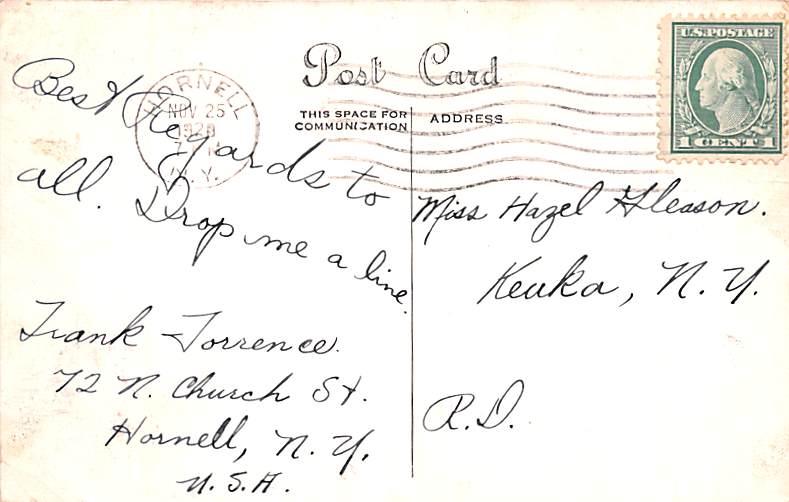 Post Card
THIS SPACE FOR
COMMUNICATION
ADDRESS
U.S. POSTAGE
1 CENT 1
HORNELL
NOV 25
N.Y.
Best Regards to
all. Drop me a line.
Frank Torrence.
72 N. Church St.
Hornell, N. Y.
U. S. A.
Miss Hazel Gleason.
Keuka, N. Y.
R. D.